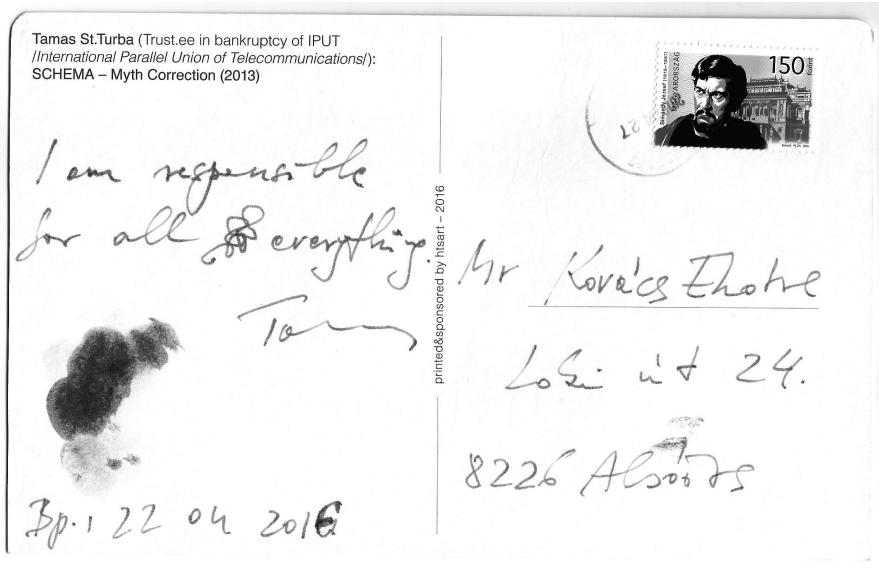 Tamas St.Turba (Trust.ee in bankruptcy of IPUT
/International Parallel Union of Telecommunications/):
SCHEMA – Myth Correction (2013)
I am responsible
for all everything.
Tamas
Bp., 22 04 2016
printed&sponsored by htsart – 2016
150
forint
MAGYARORSZÁG
27
Mr Kovács
út 24.
8226 Alsóörs